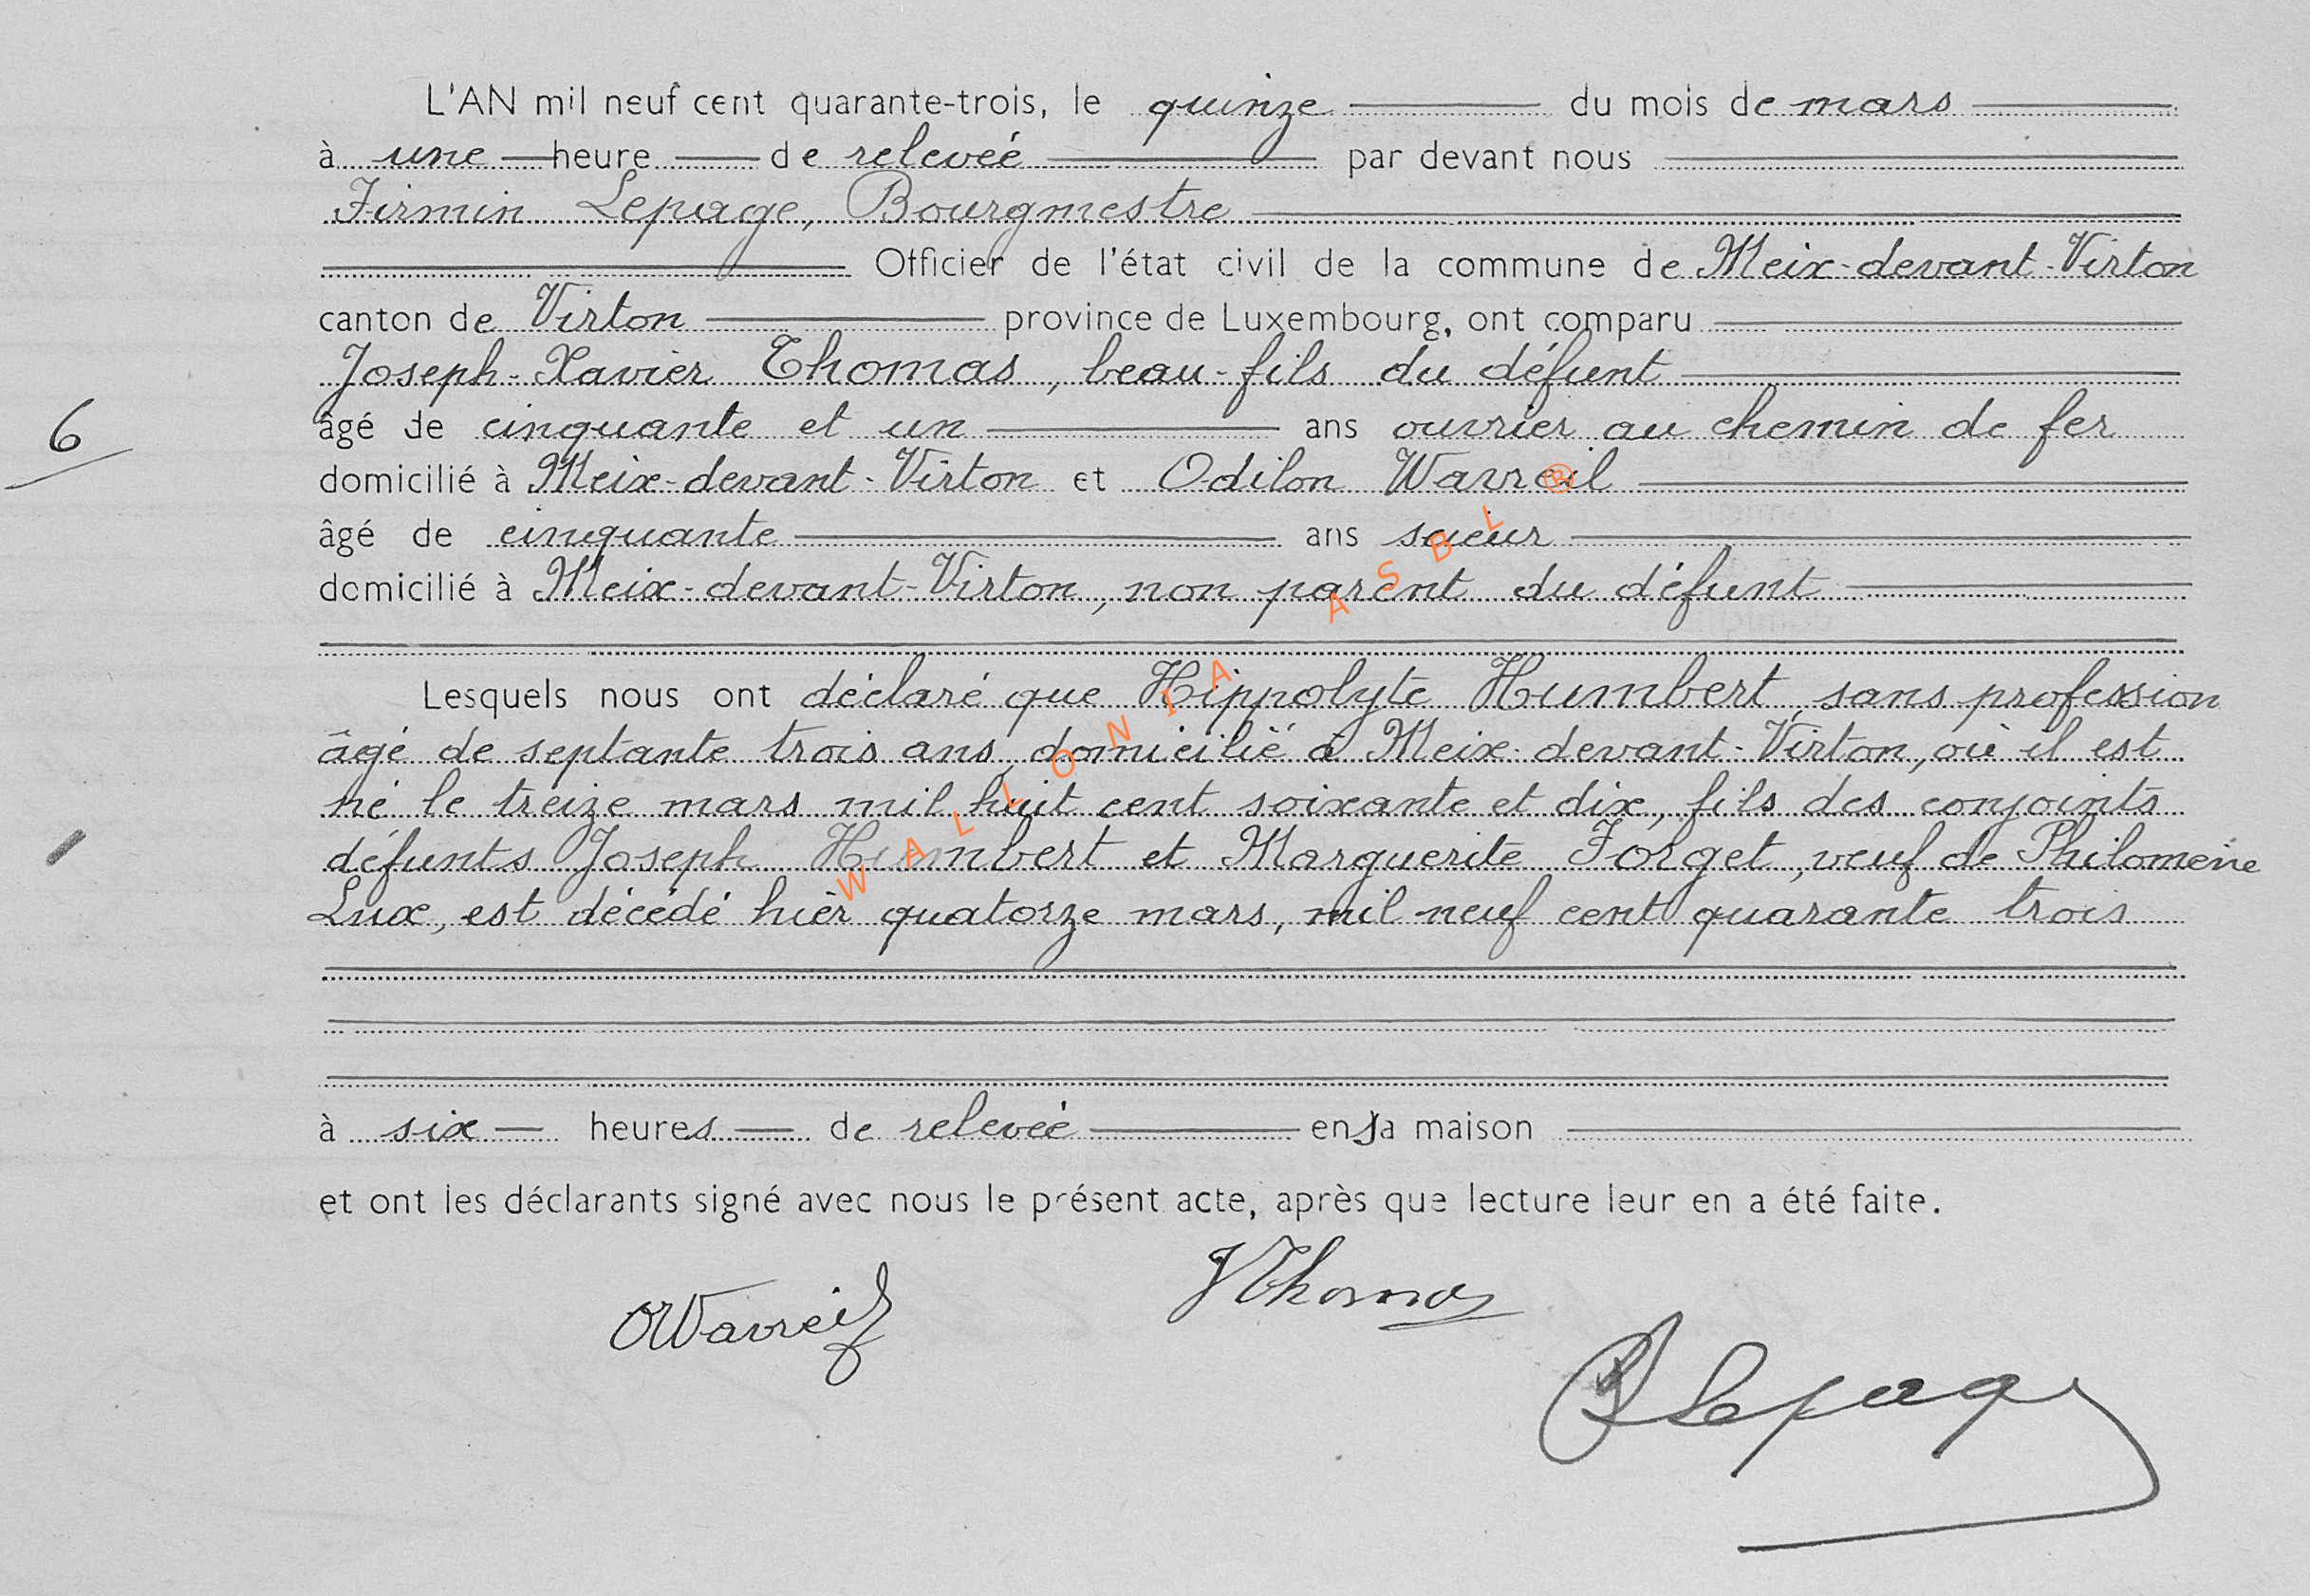 L'AN mil neuf cent quarante-trois, le quinze du mois de mars
à une heure de relevée par devant nous
Firmin Lepage, Bourgmestre
Officier de l'état civil de la commune de Meix-devant-Virton
canton de Virton province de Luxembourg, ont comparu
Joseph-Xavier Thomas, beau-fils du défunt
âgé de cinquante et un ans ouvrier au chemin de fer
6
domicilié à Meix-devant-Virton et Odilon Wavreil
âgé de cinquante ans
domicilié à Meix-devant-Virton, non parent du défunt
Lesquels nous ont déclaré que Hippolyte Humbert, sans profession
âgé de septante trois ans, domicilié à Meix-devant-Virton, où il est
né le treize mars mil huit cent soixante et dix, fils des conjoints
défunts Joseph Humbert et Marguerite Forget, veuf de Philomène
Lux, est décédé hier quatorze mars, mil neuf cent quarante trois
à six heures de relevée en sa maison
et ont les déclarants signé avec nous le présent acte, après que lecture leur en a été faite.
OWavreil
JThomas
Lepage
WALLONIA ASBL ®